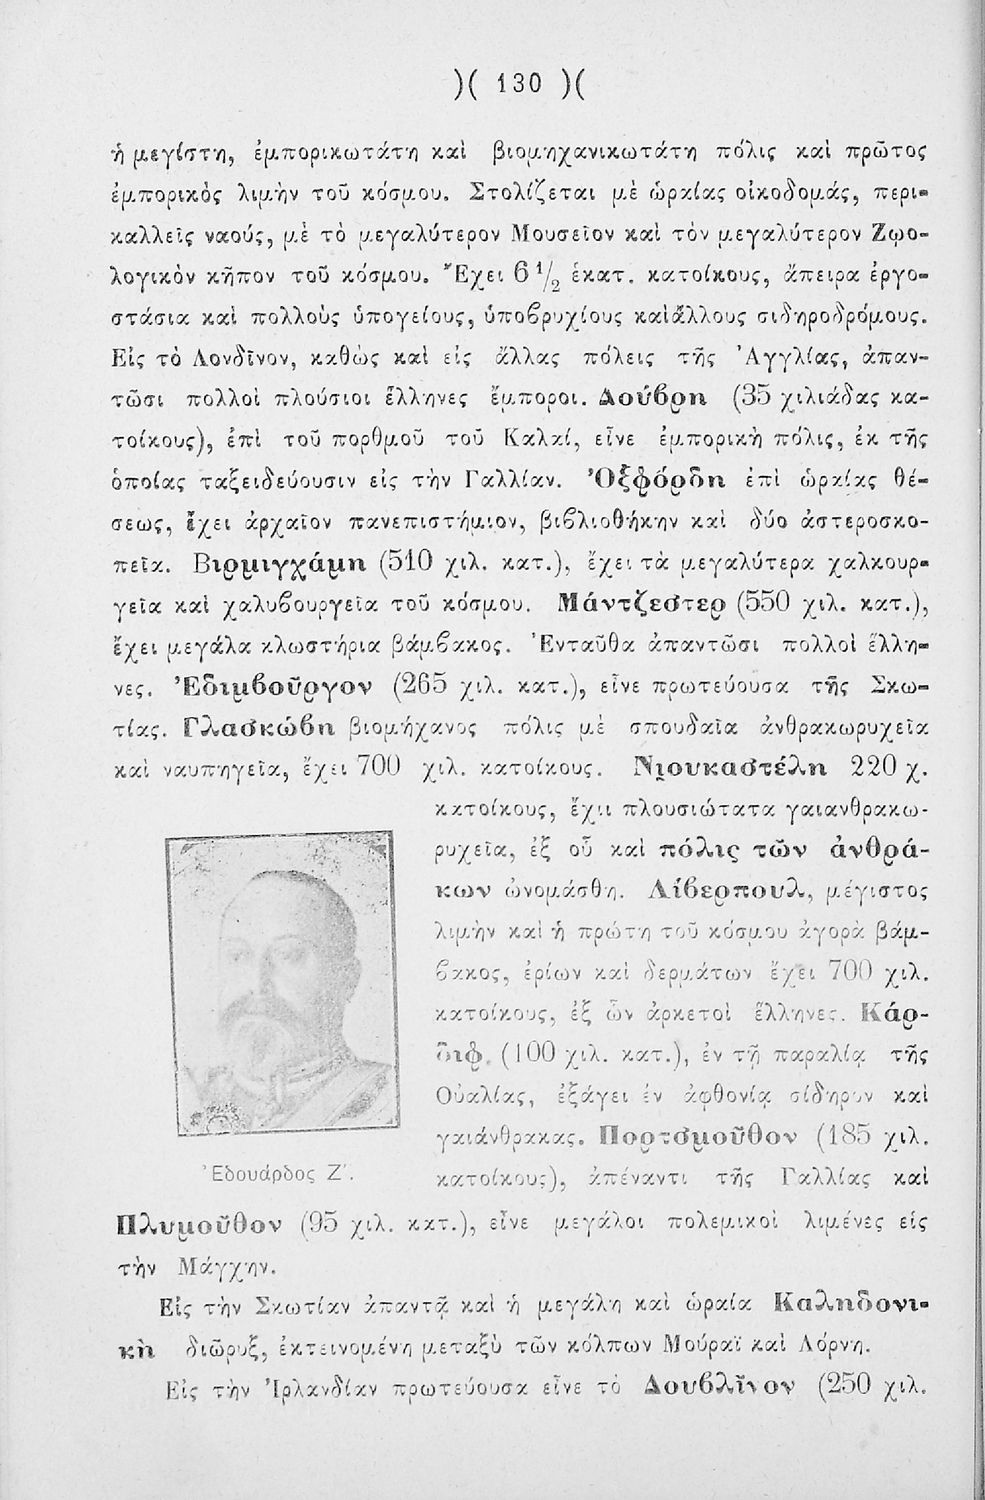 )( 130 )(
ἡ μεγίστη, ἐμπορικωτάτη καὶ βιομηχανικωτάτη πόλις καὶ πρῶτος
ἐμπορικὸς λιμὴν τοῦ κόσμου. Στολίζεται μὲ ὡραίας οἰκοδομάς, περι-
καλλεῖς ναούς, μὲ τὸ μεγαλύτερον Μουσεῖον καὶ τὸν μεγαλύτερον Ζῳο-
λογικὸν κῆπον τοῦ κόσμου. Ἔχει 6 1/2 ἑκατ. κατοίκους, ἄπειρα ἐργο-
στάσια καὶ πολλοὺς ὑπογείους, ὑποβρυχίους καὶ ἄλλους σιδηροδρόμους.
Εἰς τὸ Λονδῖνον, καθὼς καὶ εἰς ἄλλας πόλεις τῆς Ἀγγλίας, ἀπαν-
τῶσι πολλοὶ πλούσιοι ἕλληνες ἔμποροι. Δούβρη (35 χιλιάδας κα-
τοίκους), ἐπὶ τοῦ πορθμοῦ τοῦ Καλαί, εἶνε ἐμπορικὴ πόλις, ἐκ τῆς
ὁποίας ταξειδεύουσιν εἰς τὴν Γαλλίαν. Ὀξφόρδη ἐπὶ ὡραίας θέ-
σεως, ἔχει ἀρχαῖον πανεπιστήμιον, βιβλιοθήκην καὶ δύο ἀστεροσκο-
πεῖα. Βιρμιγχάμη (510 χιλ. κατ.), ἔχει τὰ μεγαλύτερα χαλκουρ-
γεῖα καὶ χαλυβουργεῖα τοῦ κόσμου. Μάντζεστερ (550 χιλ. κατ.),
ἔχει μεγάλα κλωστήρια βάμβακος. Ἐνταῦθα ἀπαντῶσι πολλοὶ ἕλλη-
νες. Ἐδιμβοῦργον (265 χιλ. κατ.), εἶνε πρωτεύουσα τῆς Σκω-
τίας. Γλασκώβη βιομήχανος πόλις μὲ σπουδαῖα ἀνθρακωρυχεῖα
καὶ ναυπηγεῖα, ἔχει 700 χιλ. κατοίκους. Νιουκαστέλη 220 χ.
κατοίκους, ἔχει πλουσιώτατα γαιανθρακω-
ρυχεῖα, ἐξ οὗ καὶ πόλις τῶν ἀνθρά-
κων ὠνομάσθη. Λίβερπουλ, μέγιστος
λιμὴν καὶ ἡ πρώτη τοῦ κόσμου ἀγορὰ βάμ-
βακος, ἐρίων καὶ δερμάτων ἔχει 700 χιλ.
κατοίκους, ἐξ ὧν ἀρκετοὶ ἕλληνες. Κάρ-
διφ (100 χιλ. κατ.), ἐν τῇ παραλίᾳ τῆς
Οὐαλίας, ἐξάγει ἐν ἀφθονίᾳ σίδηρον καὶ
γαιάνθρακας. Πορτσμοῦθον (185 χιλ.
κατοίκους), ἀπέναντι τῆς Γαλλίας καὶ
Ἐδουάρδος Ζ΄.
Πλυμοῦθον (95 χιλ. κατ.), εἶνε μεγάλοι πολεμικοὶ λιμένες εἰς
τὴν Μάγχην.
Εἰς τὴν Σκωτίαν ἀπαντᾷ καὶ ἡ μεγάλη καὶ ὡραία Καληδονι-
κὴ διῶρυξ, ἐκτεινομένη μεταξὺ τῶν κόλπων Μούραϊ καὶ Λόρνη.
Εἰς τὴν Ἰρλανδίαν πρωτεύουσα εἶνε τὸ Δουβλῖνον (250 χιλ.